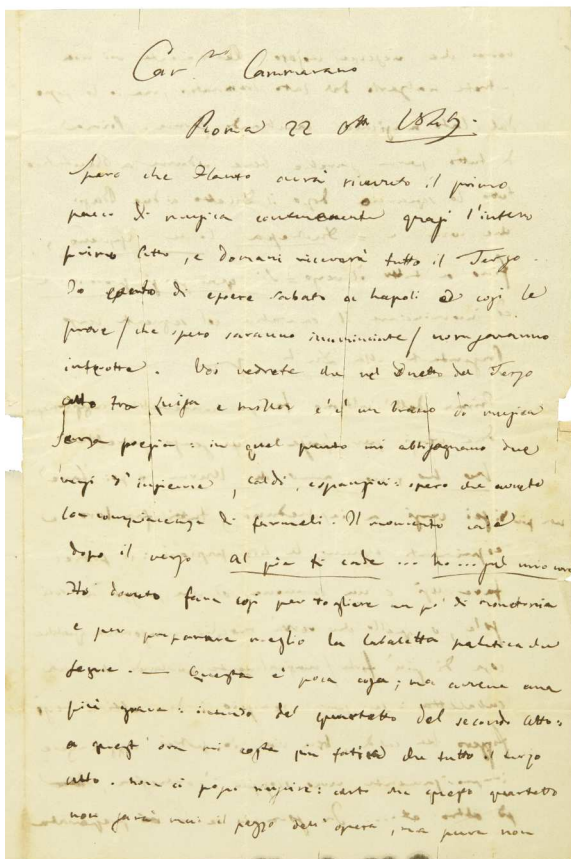 Car.mo Cammarano
Roma 22 8bre 1849.
Spero che Flauto avrà ricevuto il primo
pacco di musica contenente quasi l'intero
primo atto, e domani riceverà tutto il Terzo.
Io conto di essere sabato a Napoli ed così le
prove / che spero saranno incominciate / non saranno
interrotte. Voi vedrete che nel Duetto del Terzo
atto tra Luisa e Miller c'è un brano di musica
senza poesia: in quel punto mi abbisognano due
versi d'insieme, caldi, espansivi: spero che avrete
la compiacenza di farmeli. Il momento cade
dopo il verso Al piè ti cade ... ho ... pel mio
Ho dovuto fare così per togliere un po' di monotonia
e per preparare meglio la cabaletta patetica che
segue. — Questa è poca cosa; ma avvene una
più grave: intendo del quartetto del secondo atto:
a quest'ora mi costa più fatica che tutto il terzo
atto. non ci posso riuscire: certo che questo quartetto
non sarà mai il pezzo dell'opera, ma pure non